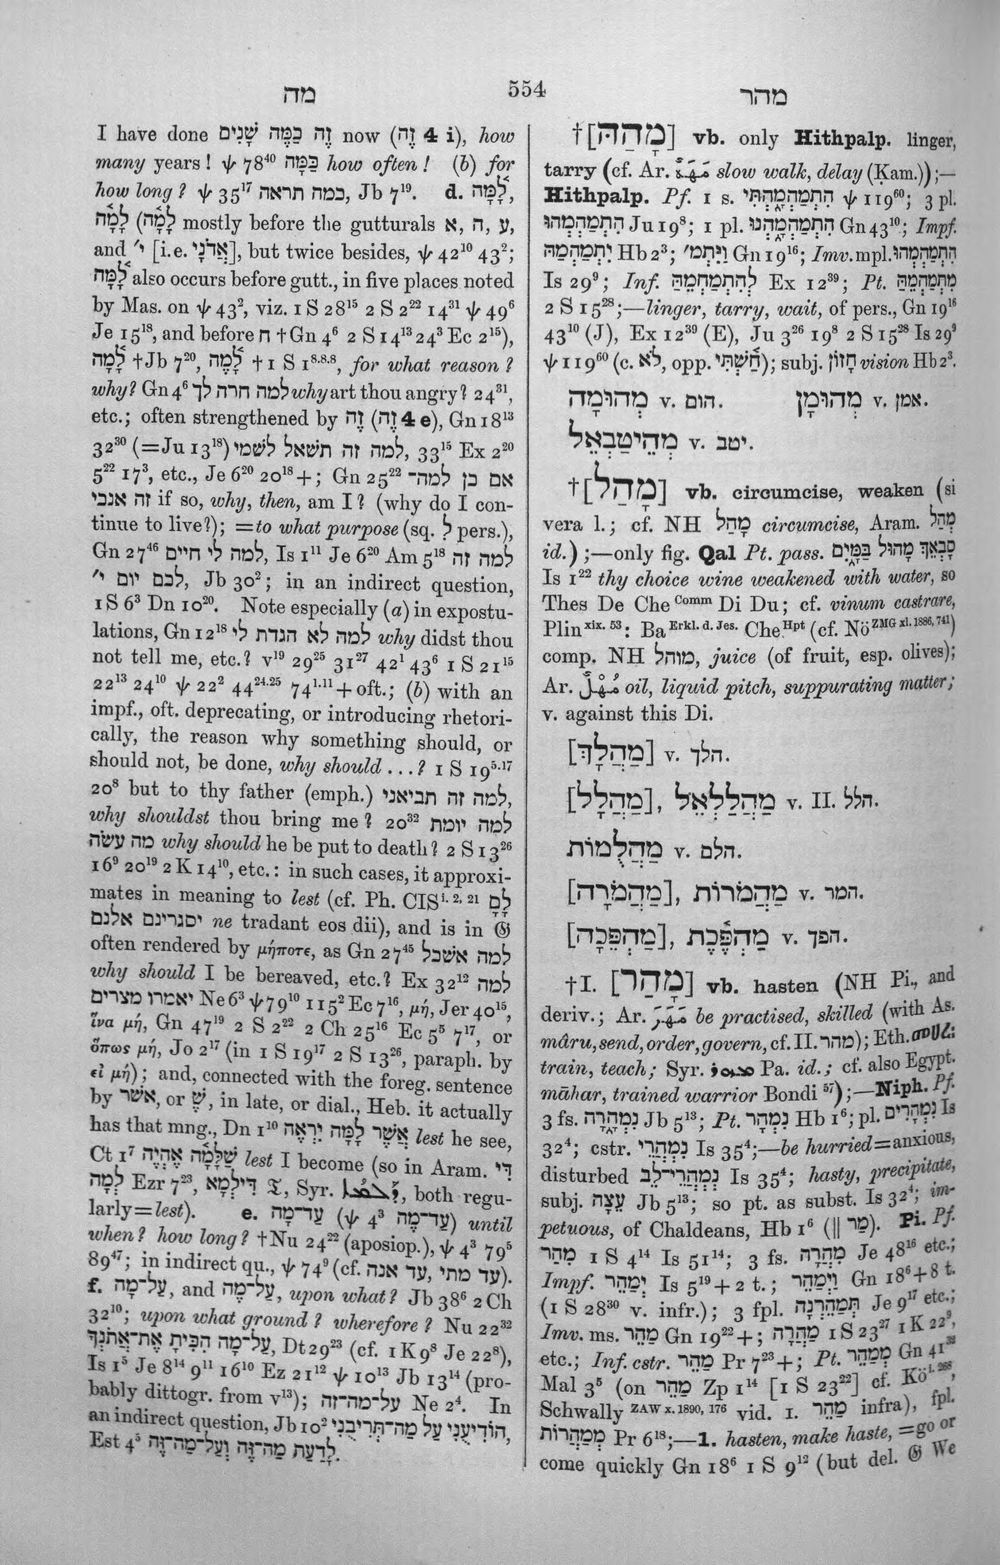 מה
554
מהר
I have done זֶה כַּמֶּה שָׁנִים now (זֶה 4 i), how
many years! ψ 78⁴⁰ כַּמָּה how often! (b) for
how long? ψ 35¹⁷ כמה תראה, Jb 7¹⁹. d. לָ֫מָּה,
לָמֶ֫ה (לָמָ֫ה mostly before the gutturals ע, ה, א,
and י׳ [i.e. אֲדֹנָי], but twice besides, ψ 42¹⁰ 43²;
לָ֫מָּה also occurs before gutt., in five places noted
by Mas. on ψ 43², viz. 1 S 28¹⁵ 2 S 2²² 14³¹ ψ 49⁶
Je 15¹⁸, and before ח †Gn 4⁶ 2 S 14¹³ 24³ Ec 2¹⁵),
לָ֫מָה †Jb 7²⁰, לָ֫מֶה †1 S 1⁸·⁸·⁸, for what reason?
why? Gn 4⁶ למה חרה לך why art thou angry? 24³¹,
etc.; often strengthened by זֶה (זֶה 4 e), Gn 18¹³
32³⁰ (=Ju 13¹⁸) למה זה תשאל לשמי, 33¹⁵ Ex 2²⁰
5²² 17³, etc., Je 6²⁰ 20¹⁸+; Gn 25²² אם כן למה־
זה אנכי if so, why, then, am I? (why do I con-
tinue to live?); =to what purpose (sq. לְ pers.),
Gn 27⁴⁶ למה לי חיים, Is 1¹¹ Je 6²⁰ Am 5¹⁸ למה זה
לכם יום י׳, Jb 30²; in an indirect question,
1 S 6³ Dn 10²⁰. Note especially (a) in expostu-
lations, Gn 12¹⁸ למה לא הגדת לי why didst thou
not tell me, etc.? v¹⁹ 29²⁵ 31²⁷ 42¹ 43⁶ 1 S 21¹⁵
22¹³ 24¹⁰ ψ 22² 44²⁴·²⁵ 74¹·¹¹ + oft.; (b) with an
impf., oft. deprecating, or introducing rhetori-
cally, the reason why something should, or
should not, be done, why should ...? 1 S 19⁵·¹⁷
20⁸ but to thy father (emph.) למה זה תביאני,
why shouldst thou bring me? 20³² למה יומת
מה עשׂה why should he be put to death? 2 S 13²⁶
16⁹ 20¹⁹ 2 K 14¹⁰, etc.: in such cases, it approxi-
mates in meaning to lest (cf. Ph. CISⁱ· ²· ²¹ לָם
יסגרינם אלנם ne tradant eos dii), and is in 𝔊
often rendered by μήποτε, as Gn 27⁴⁵ למה אשכל
why should I be bereaved, etc.? Ex 32¹² למה
יאמרו מצרים Ne 6³ ψ 79¹⁰ 115² Ec 7¹⁶, μή, Jer 40¹⁵,
ἵνα μή, Gn 47¹⁹ 2 S 2²² 2 Ch 25¹⁶ Ec 5⁵ 7¹⁷, or
ὅπως μή, Jo 2¹⁷ (in 1 S 19¹⁷ 2 S 13²⁶, paraph. by
εἰ μή); and, connected with the foreg. sentence
by אשׁר, or שֶׁ, in late, or dial., Heb. it actually
has that mng., Dn 1¹⁰ אֲשֶׁר לָמָּה יִרְאֶה lest he see,
Ct 1⁷ שַׁלָּמָה אֶהְיֶה lest I become (so in Aram. דִּי
לְמָה Ezr 7²³, דִּילְמָא 𝔗, Syr. ܕܰܠܡܳܐ, both regu-
larly=lest). e. עַד־מָה (עַד־מֶה ψ 4³) until
when? how long? †Nu 24²² (aposiop.), ψ 4³ 79⁵
89⁴⁷; in indirect qu., ψ 74⁹ (cf. עד מתי, עד אנה).
f. עַל־מָה, and עַל־מֶה, upon what? Jb 38⁶ 2 Ch
32¹⁰; upon what ground? wherefore? Nu 22³²
עַל־מָה הִכִּיתָ אֶת־אֲתֹנְךָ, Dt 29²³ (cf. 1 K 9⁸ Je 22⁸),
Is 1⁵ Je 8¹⁴ 9¹¹ 16¹⁰ Ez 21¹² ψ 10¹³ Jb 13¹⁴ (pro-
bably dittogr. from v¹³); על־מה־זה Ne 2⁴. In
an indirect question, Jb 10² הוֹדִיעֵנִי עַל מַה־תְּרִיבֵנִי,
Est 4⁵ לָדַעַת מַה־זֶּה וְעַל־מַה־זֶּה.
†[מָהַהּ] vb. only Hithpalp. linger,
tarry (cf. Ar. مَهَهٌ slow walk, delay (Ḳam.));—
Hithpalp. Pf. 1 s. הִתְמַהְמָ֑הְתִּי ψ 119⁶⁰; 3 pl.
הִתְמַהְמְהוּ Ju 19⁸; 1 pl. הִתְמַהְמָ֑הְנוּ Gn 43¹⁰; Impf.
יִתְמַהְמַהּ Hb 2³; וַיִּתְמ׳ Gn 19¹⁶; Imv. mpl. הִתְמַהְמְהוּ
Is 29⁹; Inf. לְהִתְמַהְמֵהַּ Ex 12³⁹; Pt. מִתְמַהְמֵהַּ
2 S 15²⁸;—linger, tarry, wait, of pers., Gn 19¹⁶
43¹⁰ (J), Ex 12³⁹ (E), Ju 3²⁶ 19⁸ 2 S 15²⁸ Is 29⁹
ψ 119⁶⁰ (c. לֹא, opp. חַ֫שְׁתִּי); subj. חָזוֹן vision Hb 2³.
מְהוּמָה v. הום. מְהוּמָן v. אמן.
מְהֵיטַבְאֵל v. יטב.
†[מָהַל] vb. circumcise, weaken (si
vera l.; cf. NH מָהַל circumcise, Aram. מְהַל
id.);—only fig. Qal Pt. pass. סָבְאֵךְ מָהוּל בַּמָּ֑יִם
Is 1²² thy choice wine weakened with water, so
Thes De Che ᶜᵒᵐᵐ Di Du; cf. vinum castrare,
Plin xix. 53: Ba Erkl. d. Jes. Che Hpt (cf. Nö ZMG xl. 1886, 741)
comp. NH מוהל, juice (of fruit, esp. olives);
Ar. مُهْلٌ oil, liquid pitch, suppurating matter;
v. against this Di.
[מַהֲלָךְ] v. הלך.
[מַהֲלָל], מַהֲלַלְאֵל v. II. הלל.
מַהֲלֻמוֹת v. הלם.
[מַהֲמֹרָה], מַהֲמֹרוֹת v. המר.
[מַהְפֵּכָה], מַהְפֶּ֫כֶת v. הפך.
†I. [מָהַר] vb. hasten (NH Pi., and
deriv.; Ar. مَهَرَ be practised, skilled (with As.
mâru, send, order, govern, cf. II. מהר); Eth. መሀረ:
train, teach; Syr. ܡܗܪ Pa. id.; cf. also Egypt.
māhar, trained warrior Bondi ⁵⁷);—Niph. Pf.
3 fs. נִמְהָ֑רָה Jb 5¹³; Pt. נִמְהָר Hb 1⁶; pl. נִמְהָרִים Is
32⁴; cstr. נִמְהֲרֵי Is 35⁴;—be hurried=anxious,
disturbed נִמְהֲרֵי־לֵב Is 35⁴; hasty, precipitate,
subj. עֵצָה Jb 5¹³; so pt. as subst. Is 32⁴; im-
petuous, of Chaldeans, Hb 1⁶ (‖ מַר). Pi. Pf.
מִהַר 1 S 4¹⁴ Is 51¹⁴; 3 fs. מִהֲרָה Je 48¹⁶ etc.;
Impf. יְמַהֵר Is 5¹⁹ + 2 t.; וַיְמַהֵר Gn 18⁶ + 8 t.
(1 S 28³⁰ v. infr.); 3 fpl. תְּמַהֵרְנָה Je 9¹⁷ etc.;
Imv. ms. מַהֵר Gn 19²²+; מַהֲרָה 1 S 23²⁷ 1 K 22⁹,
etc.; Inf. cstr. מַהֵר Pr 7²³+; Pt. מְמַהֵר Gn 41³²
Mal 3⁵ (on מַהֵר Zp 1¹⁴ [1 S 23²²] cf. Kö i. 268,
Schwally ZAW x. 1890, 176 vid. I. מַהֵר infra), fpl.
מְמַהֲרוֹת Pr 6¹⁸;—1. hasten, make haste, =go or
come quickly Gn 18⁶ 1 S 9¹² (but del. 𝔊 We